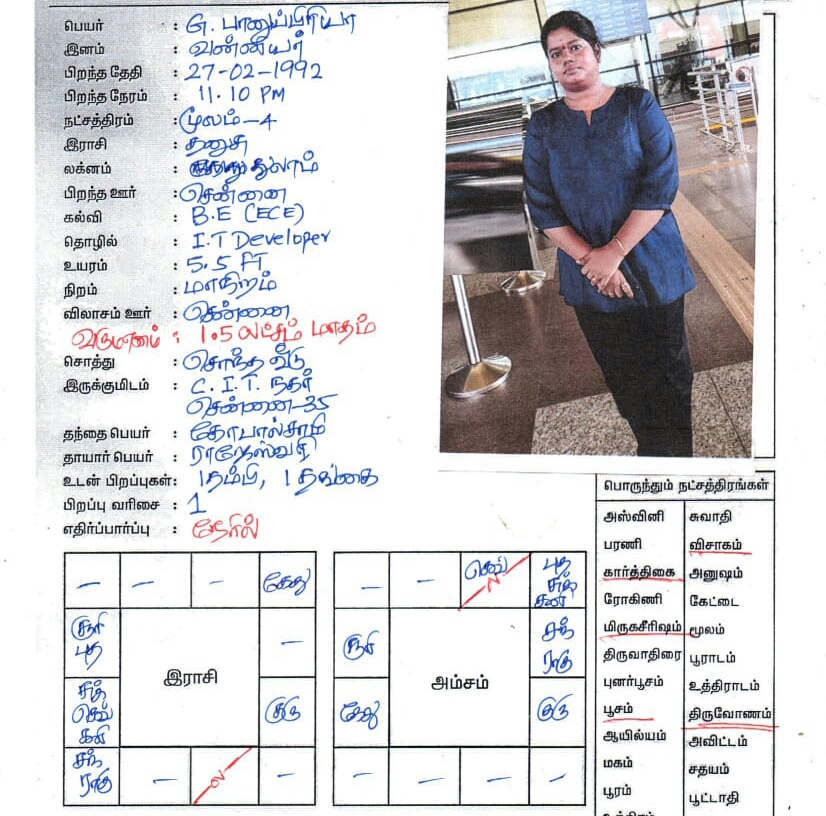 பெயர் : G. பானுப்பிரியா
இனம் : வன்னியர்
பிறந்த தேதி : 27-02-1992
பிறந்த நேரம் : 11.10 PM
நட்சத்திரம் : மூலம்-4
இராசி : தனுசு
லக்னம் : துலாம்
பிறந்த ஊர் : சென்னை
கல்வி : B.E (ECE)
தொழில் : I.T Developer
உயரம் : 5.5 FT
நிறம் : மாநிறம்
விலாசம் ஊர் : சென்னை
வருமானம் : 1.5 லட்சம் மாதம்
சொத்து : சொந்த வீடு
இருக்குமிடம் : C. I. T. நகர்
சென்னை-35
தந்தை பெயர் : கோபால்சாமி
தாயார் பெயர் : ராஜேஸ்வரி
உடன் பிறப்புகள் : 1 தம்பி, 1 தங்கை
பிறப்பு வரிசை : 1
எதிர்ப்பார்ப்பு : நேரில்
- - - கேது
சூரி புத -
இராசி
சுக் செவ் சனி குரு
சந் ராகு - ல -
- - செவ் ல புத சுக் சனி
சூரி சந் ராகு
அம்சம்
கேது குரு
- - - -
பொருந்தும் நட்சத்திரங்கள்
அஸ்வினி சுவாதி
பரணி விசாகம்
கார்த்திகை அனுஷம்
ரோகிணி கேட்டை
மிருகசீரிஷம் மூலம்
திருவாதிரை பூராடம்
புனர்பூசம் உத்திராடம்
பூசம் திருவோணம்
ஆயில்யம் அவிட்டம்
மகம் சதயம்
பூரம் பூட்டாதி